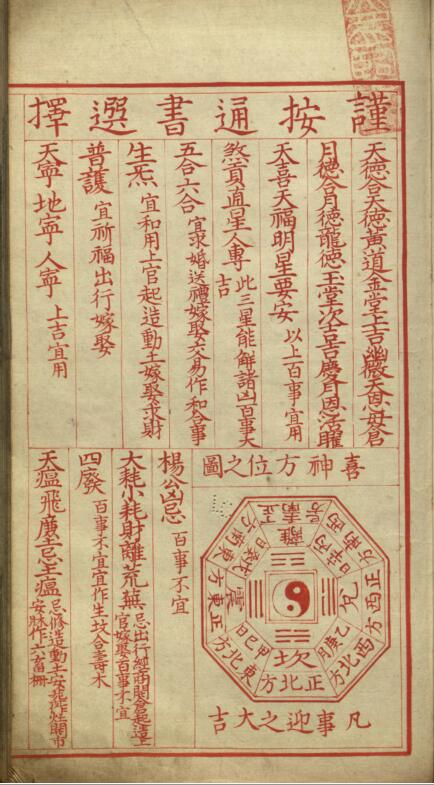 謹按通書選擇
天德合天德黃道金堂玉吉幽微天恩母倉
月德合月德龍德玉堂次吉喜慶月恩活曜
天喜天福明星要安 以上百事宜用
煞貢直星人專 此三星能解諸凶百事大吉
五合六合 宜求婚送禮嫁娶交易作和合事
生炁 宜和用上官起造動土嫁娶求財
普護 宜祈福出行嫁娶
天寧地寧人寧 上吉宜用
喜神方位之圖
正南方
離
西南方
丁壬日
正西方
兌
西北方
乙庚日
正北方
坎
東北方
甲己日
正東方
震
東南方
戊癸日
凡事迎之大吉
楊公凶忌 百事不宜
大耗小耗財離荒蕪 忌出行經商開倉起造上官嫁娶百事不宜
四廢 百事不宜宜作生坟合壽木
天瘟飛廉土忌土瘟 忌修造動土安葬作灶開市安牀作六畜柵